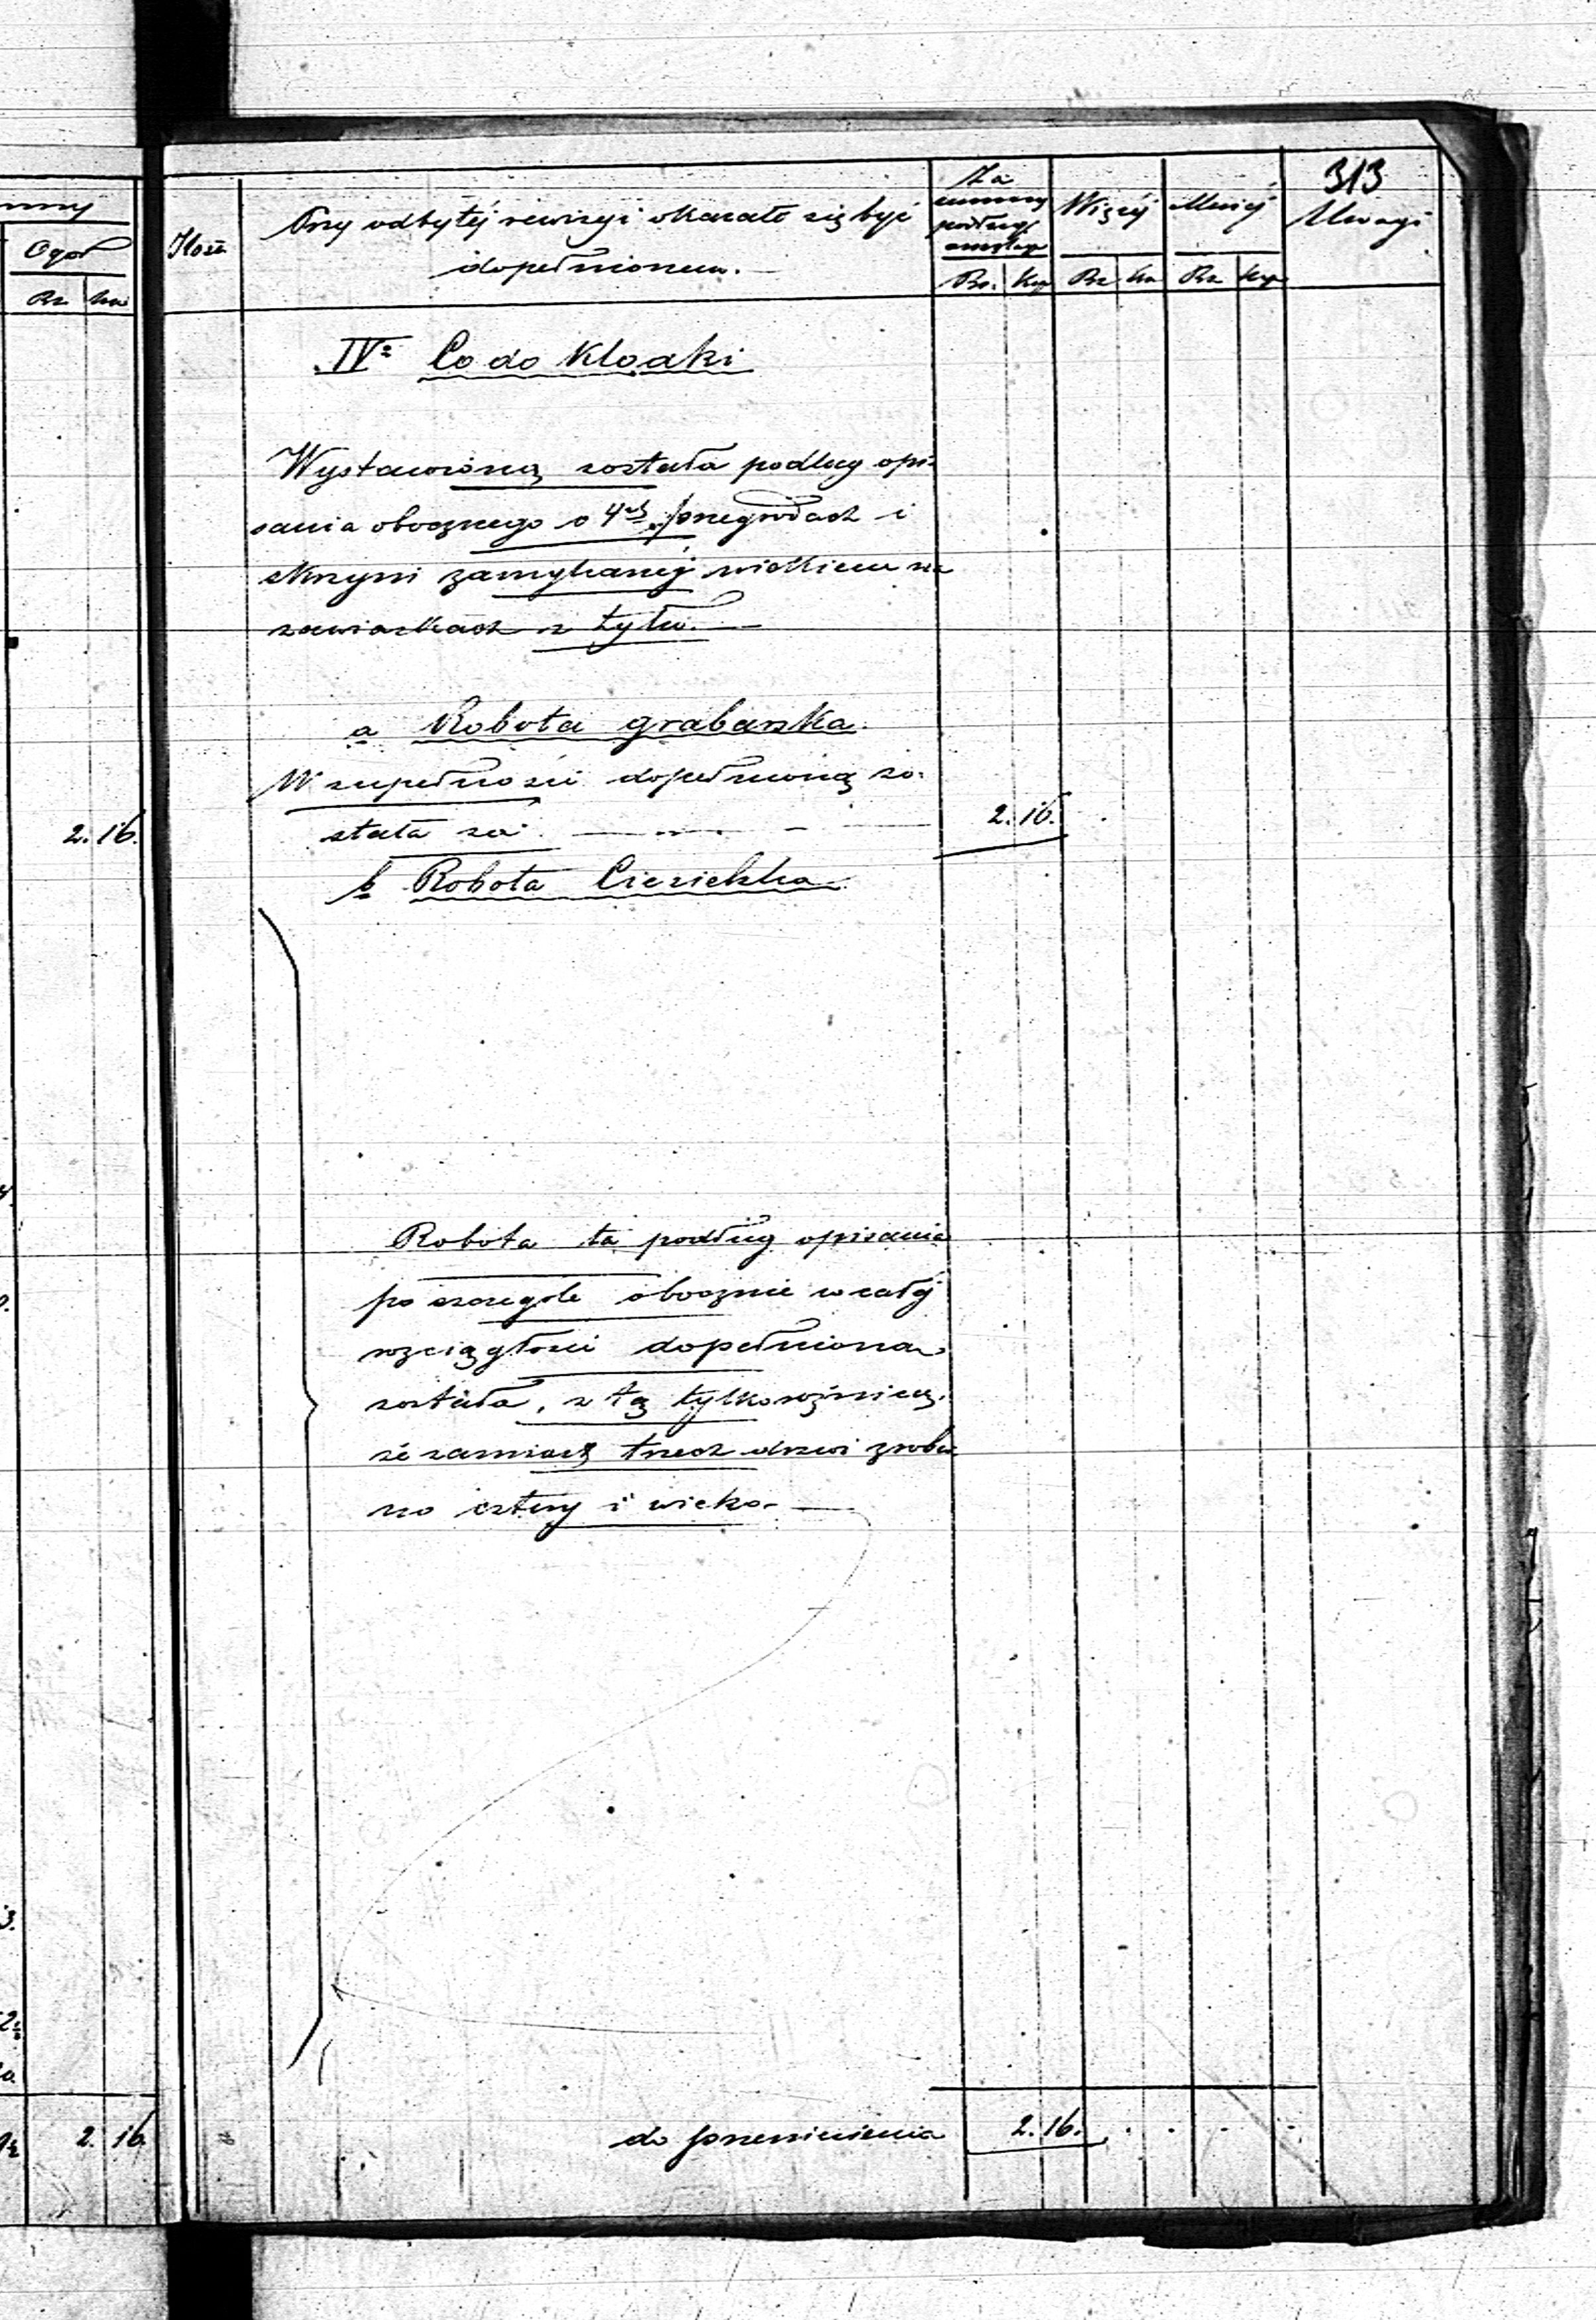 313
Ogół
Rs
Ilość
Przy odbytéj rewizyi okazało się być
dopełnionem.
Za
summę
podług
Więcéj
Mniéj
Uwagi
Rs. Kop
Rs Ko
Rs Kop
IVº Co do Kloaki
Wystawioną została podług opi-
sania obocznego o 4ch przegrodach i
skrzyni zamykanéj wiekiem na
zawiaskach z tyłu.
a Robota grabarska.
W zupełności dopełnioną zo-
stała za
2. 16.
2. 16.
b Robota Ciesielska
Robota ta podług opisania
po szczególe obocznie w całéj
rozciągłości dopełniona
została, z tą tylko różnicą,
że zamiast trzech drzwi zrobio
no cztery i wieko.
do przeniesienia 2. 16.
2. 16